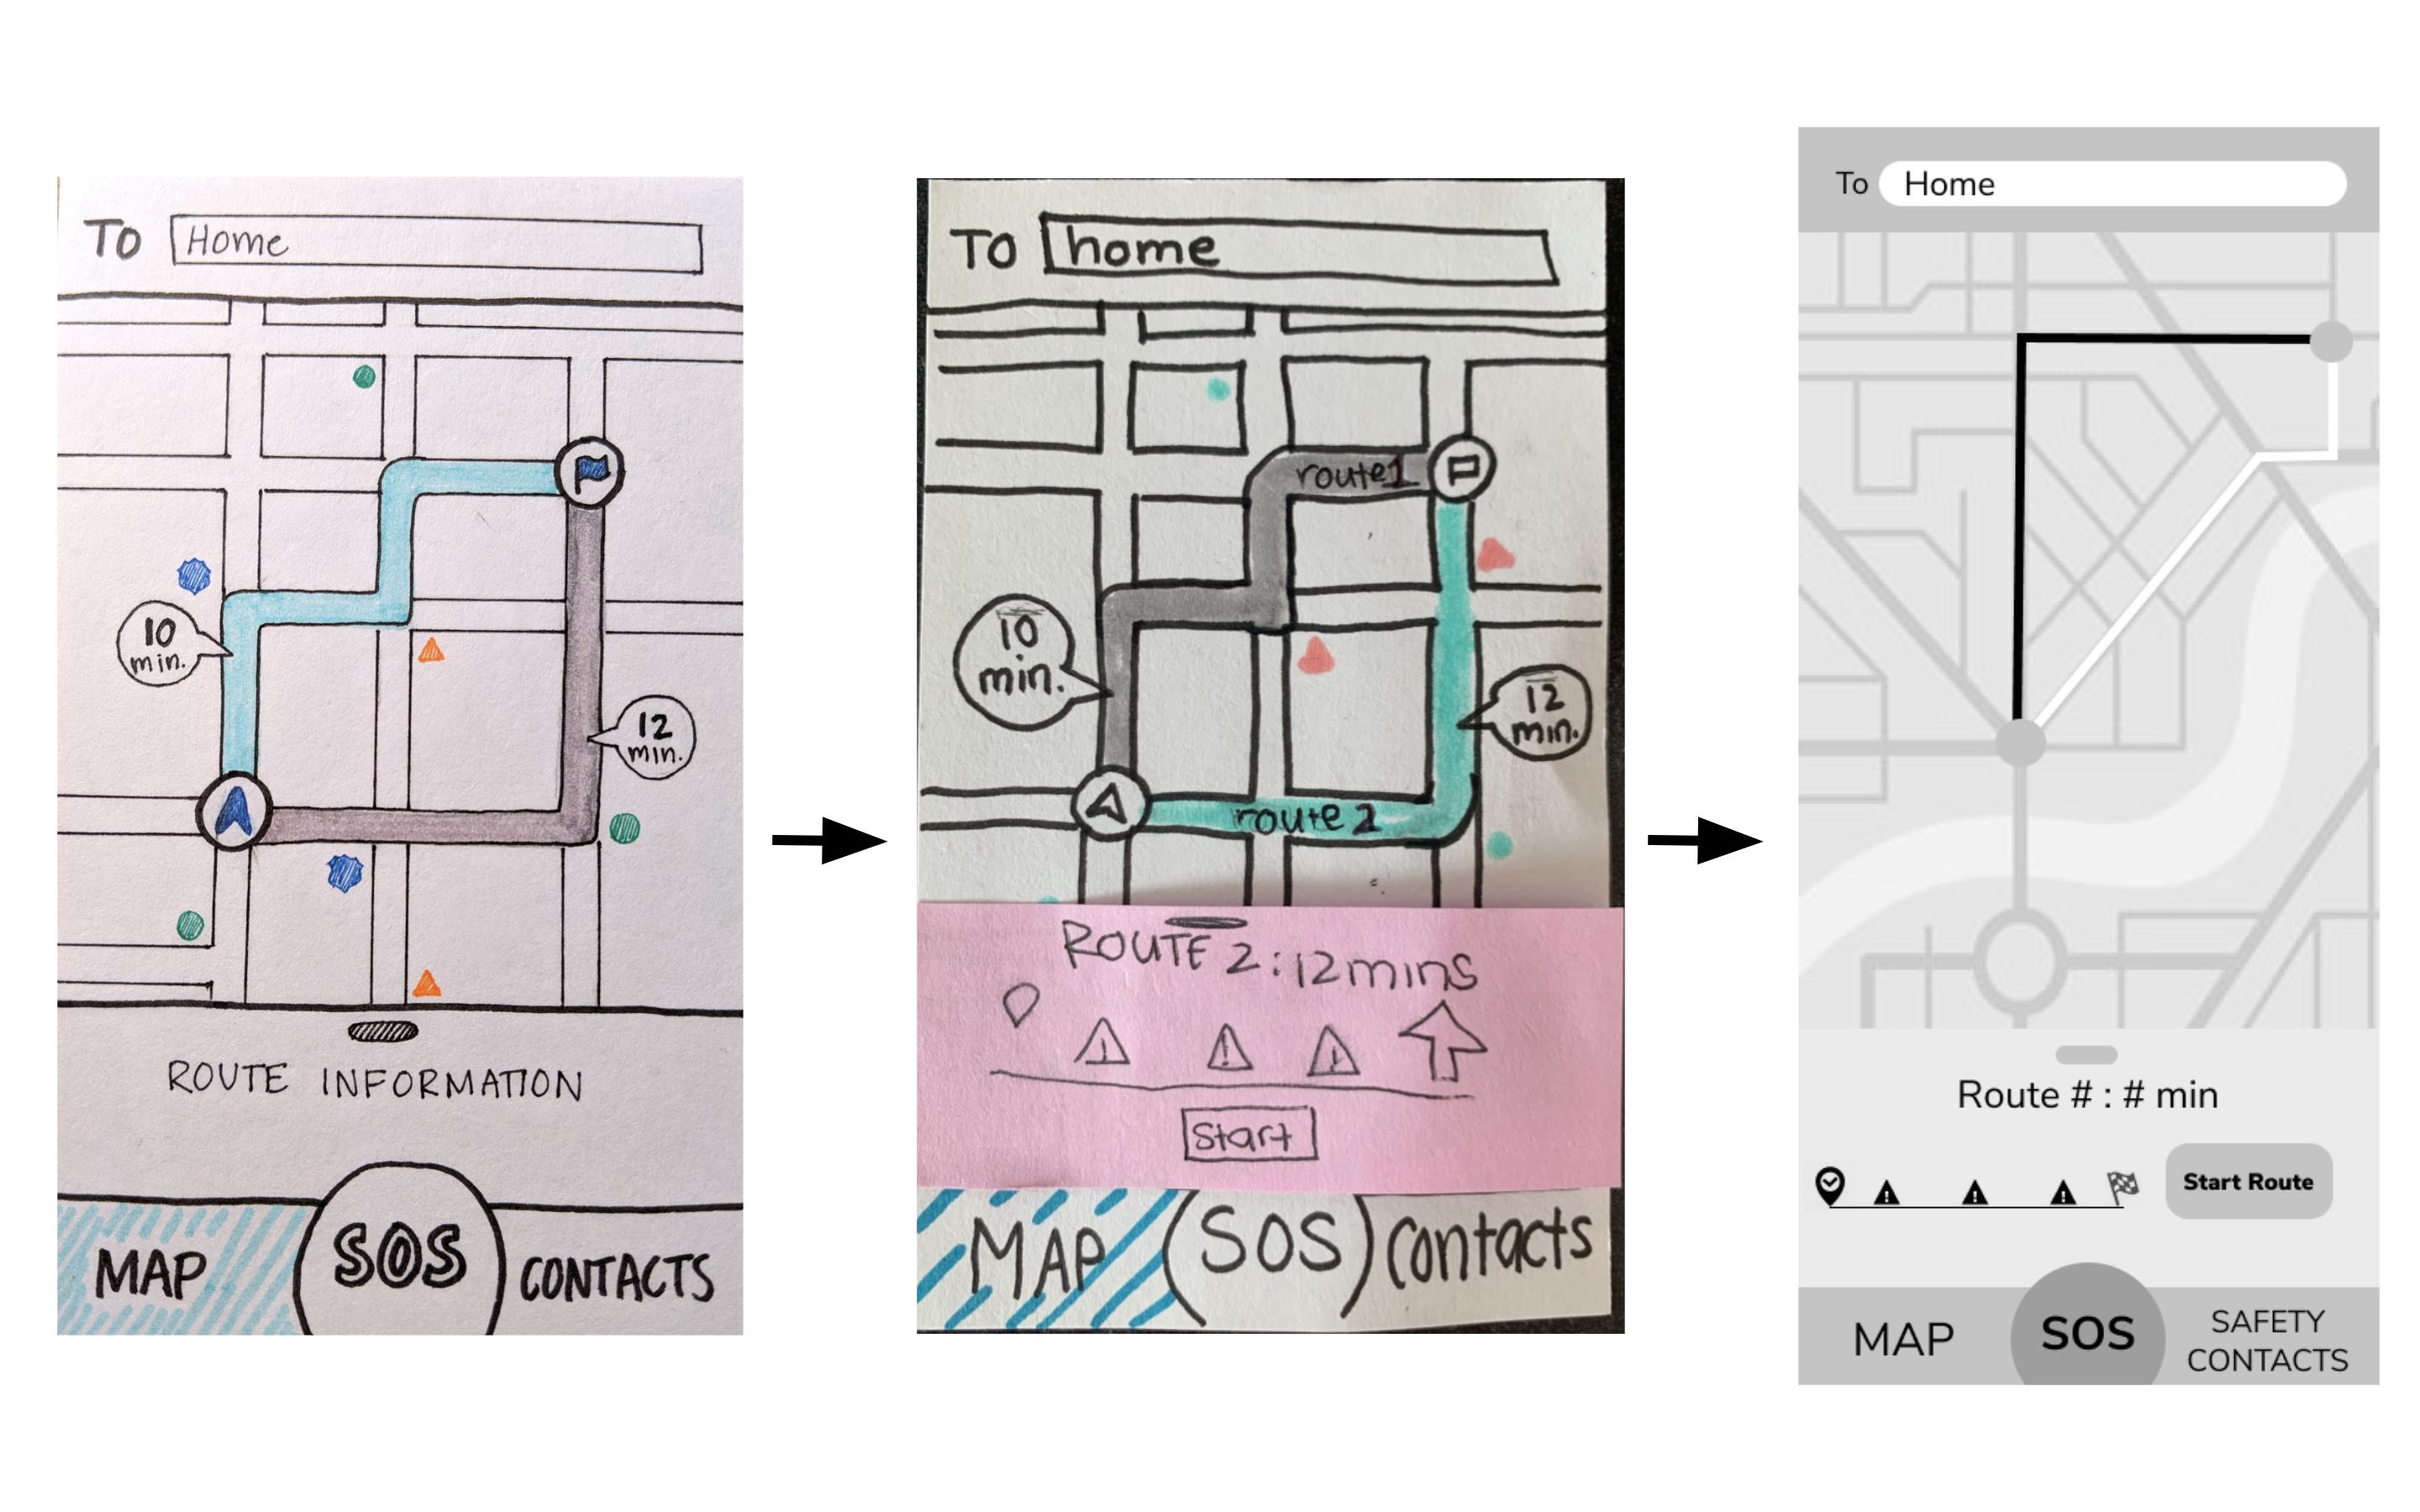 TO Home
10
min.
12
min.
ROUTE INFORMATION
MAP SOS CONTACTS
TO home
route1
10
min.
12
min.
route 2
ROUTE 2:12mins
Start
MAP SOS contacts
To Home
Route # : # min
Start Route
MAP SOS SAFETY
CONTACTS